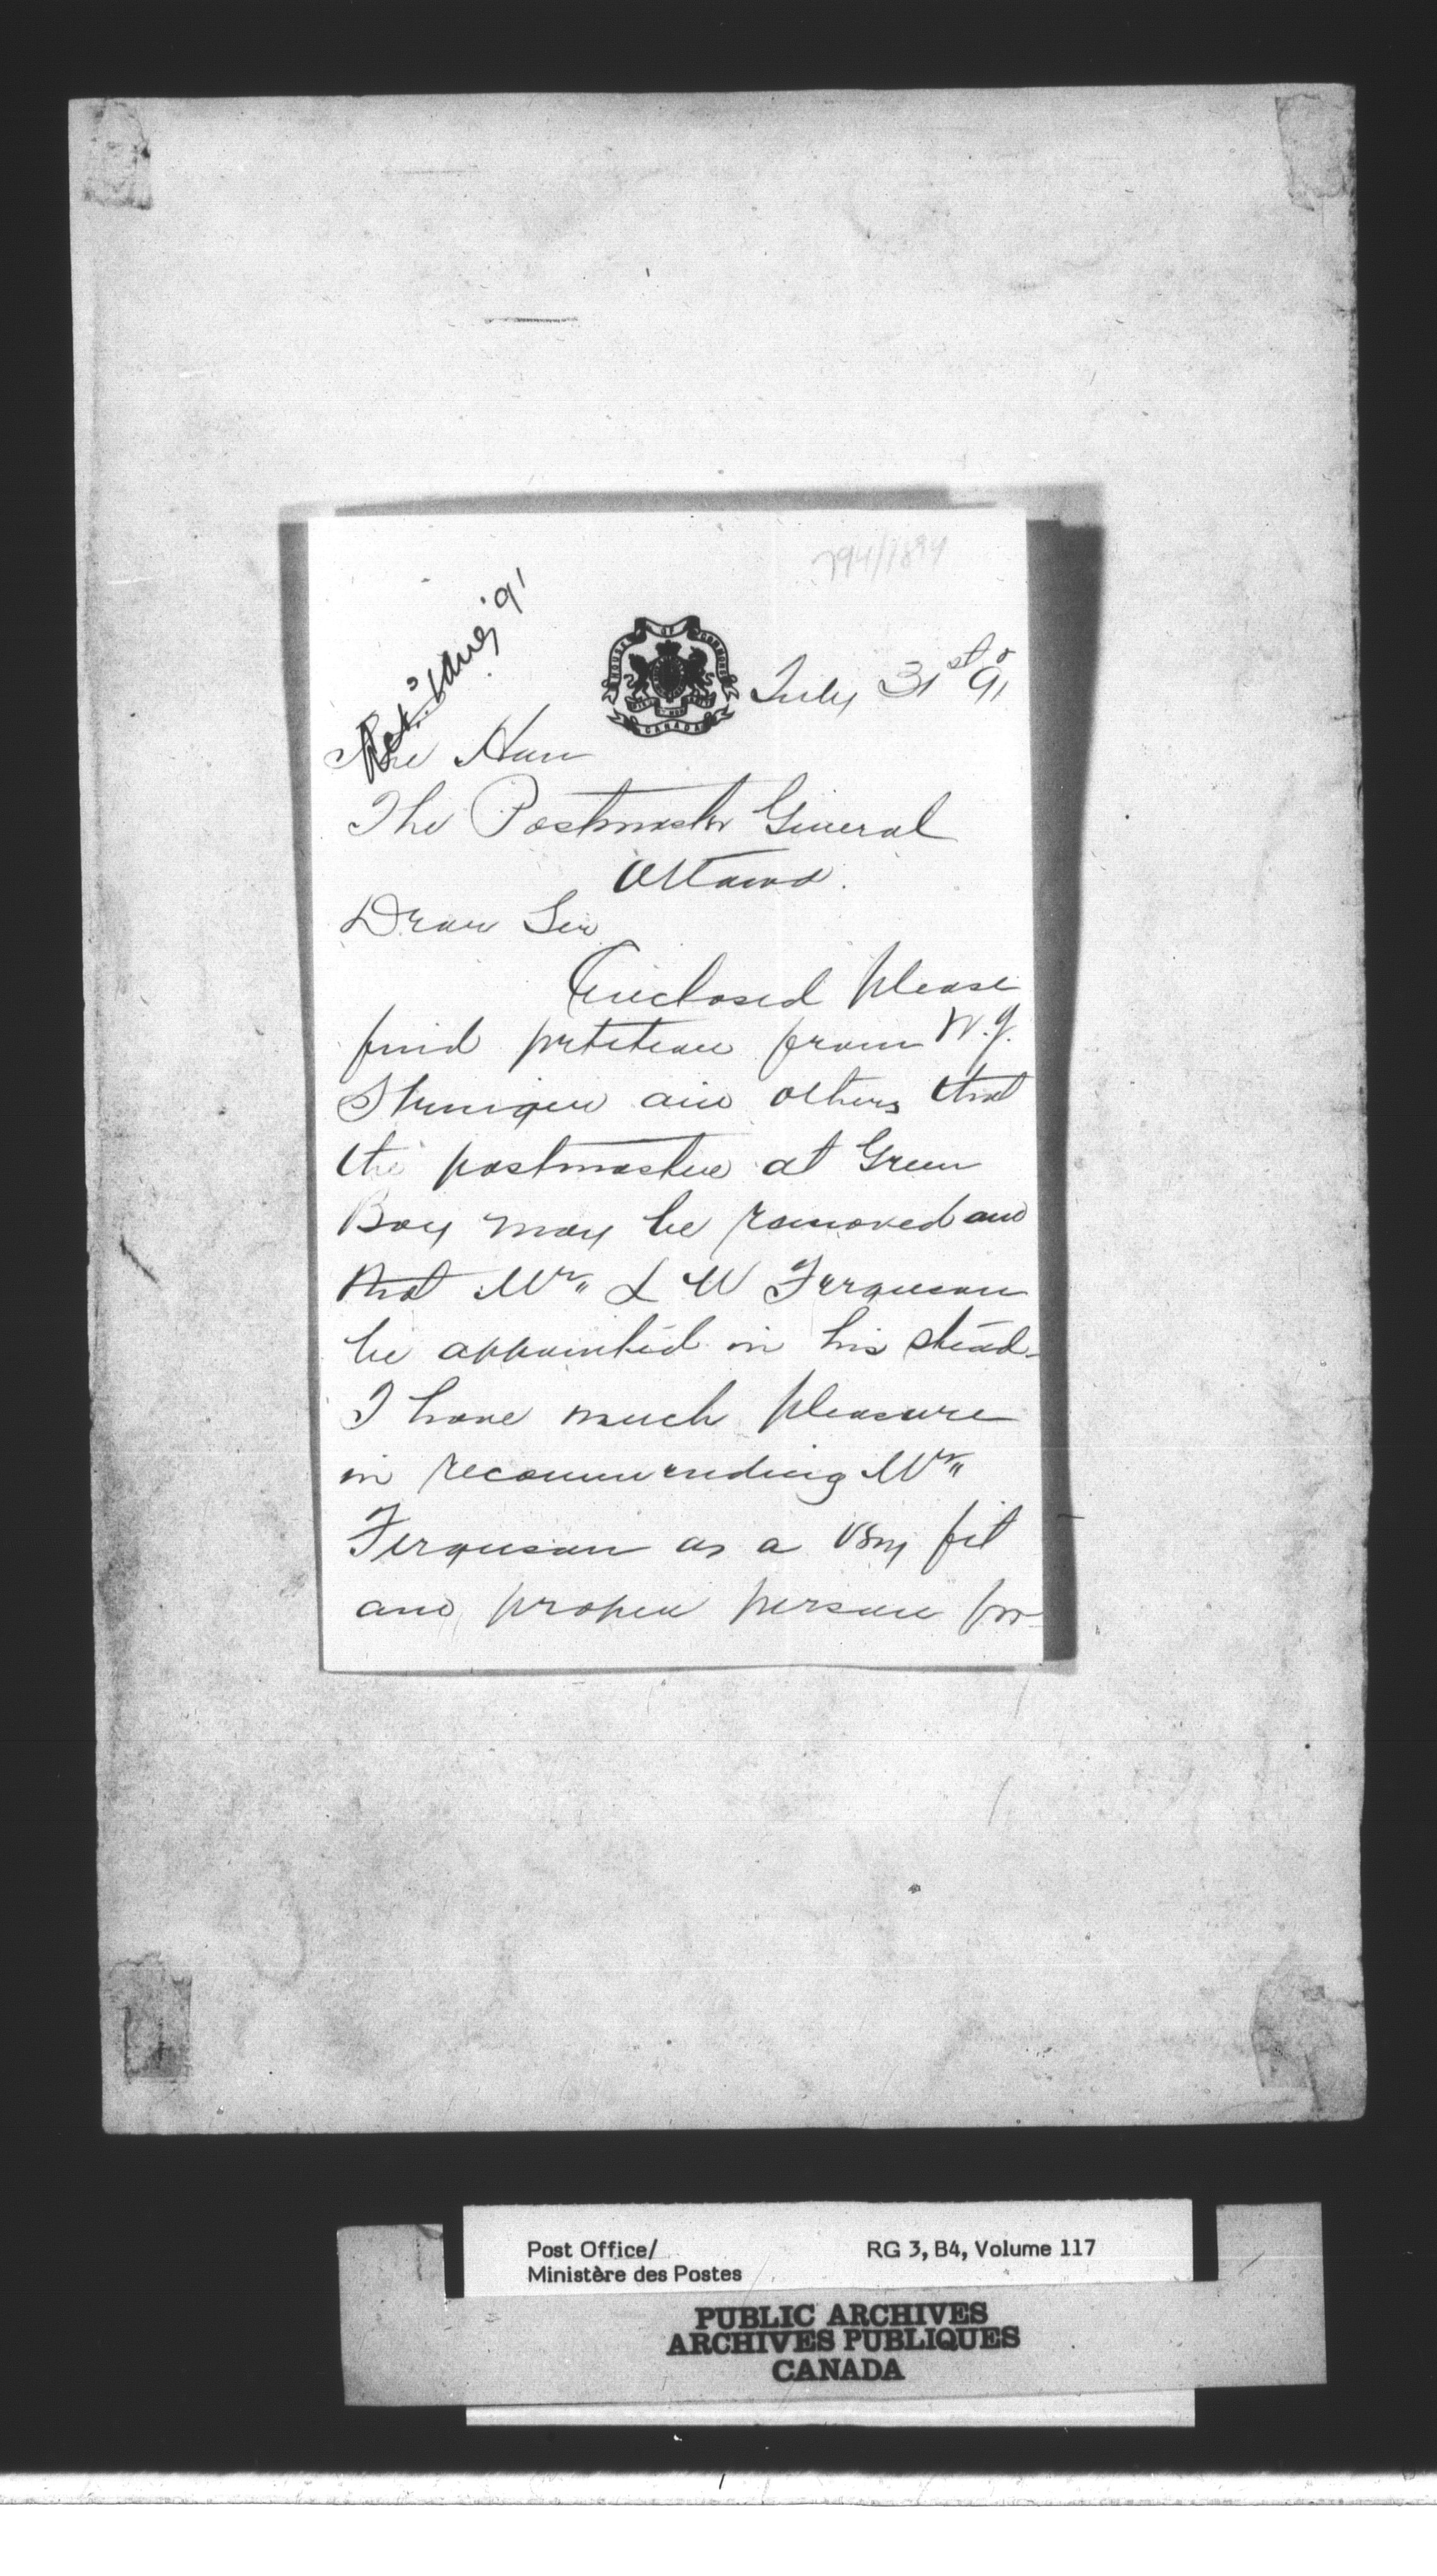 794/1894
Ack. 3 Aug '91
HOUSE OF COMMONS
CANADA
July 31st 91
The Hon
The Postmaster General
Ottawa.
Dear Sir
Enclosed please
find petition from W. J.
and others that
the postmaster at Green
Bay may be removed and
that Mr. L W Ferguson
be appointed in his stead.
I have much pleasure
in recommending Mr.
Ferguson as a very fit
and proper person for
Post Office/
Ministère des Postes
RG 3, B4, Volume 117
PUBLIC ARCHIVES
ARCHIVES PUBLIQUES
CANADA